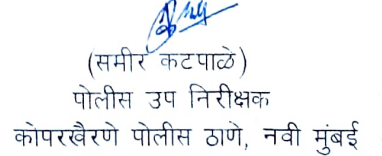 (समीर कटपाळे)
पोलीस उप निरीक्षक
कोपरखैरणे पोलीस ठाणे, नवी मुंबई